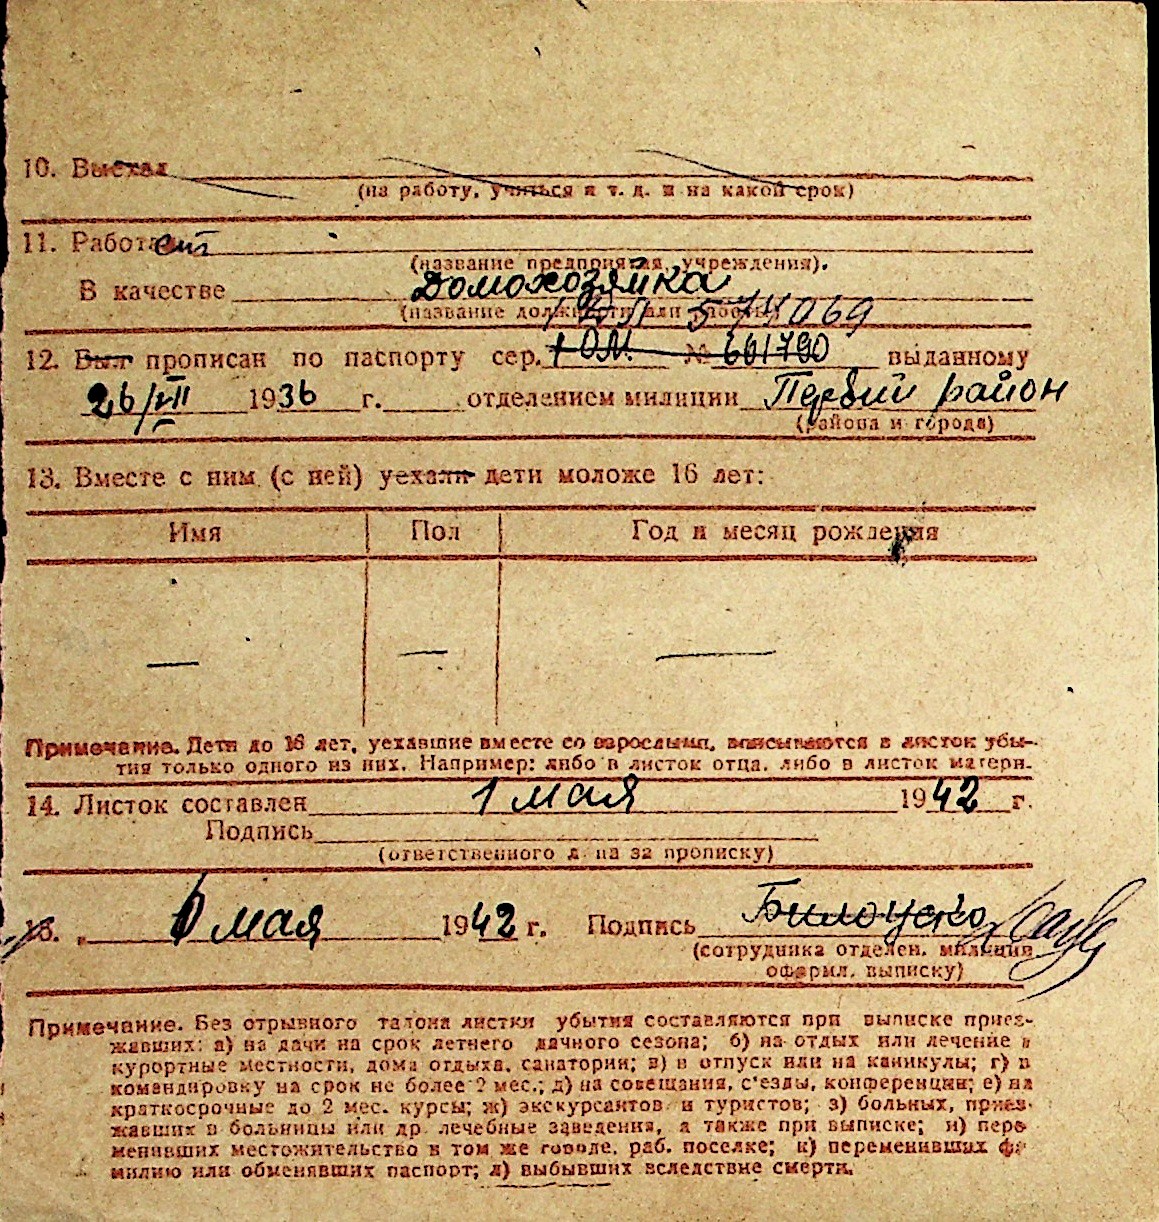 10. Выехал
(на работу, учиться и т. д. и на какой срок)
11. Работает
(название предприятия, учреждения).
В качестве Домохозяйка
(название должности или работы)
574069
12. Был прописан по паспорту сер. № 661790 выданному
26/VII 1936 г. отделением милиции Первый район
(района и города)
13. Вместе с ним (с ней) уехали дети моложе 16 лет:
Имя Пол Год и месяц рождения
— — —
Примечание. Дети до 16 лет, уехавшие вместе со взрослыми, вписываются в листок убы-
тия только одного из них. Например: либо в листок отца, либо в листок матери.
14. Листок составлен 1 мая 1942 г.
Подпись
(ответственного л на за прописку)
15. „ 6 мая 1942 г. Подпись
(сотрудника отделен. милиции
офармл. выписку)
Примечание. Без отрывного талона листки убытия составляются при выписке приез-
жавших: а) на дачи на срок летнего дачного сезона; б) на отдых или лечение в
курортные местности, дома отдыха, санатории; в) в отпуск или на каникулы; г) в
командировку на срок не более 2 мес.; д) на совещания, с'езды, конференции; е) на
краткосрочные до 2 мес. курсы; ж) экскурсантов и туристов; з) больных, приез-
жавших в больницы или др. лечебные заведения, а также при выписке; и) пере
менивших местожительство в том же городе, раб. поселке; к) переменивших фа
милию или обменявших паспорт; л) выбывших вследствие смерти.